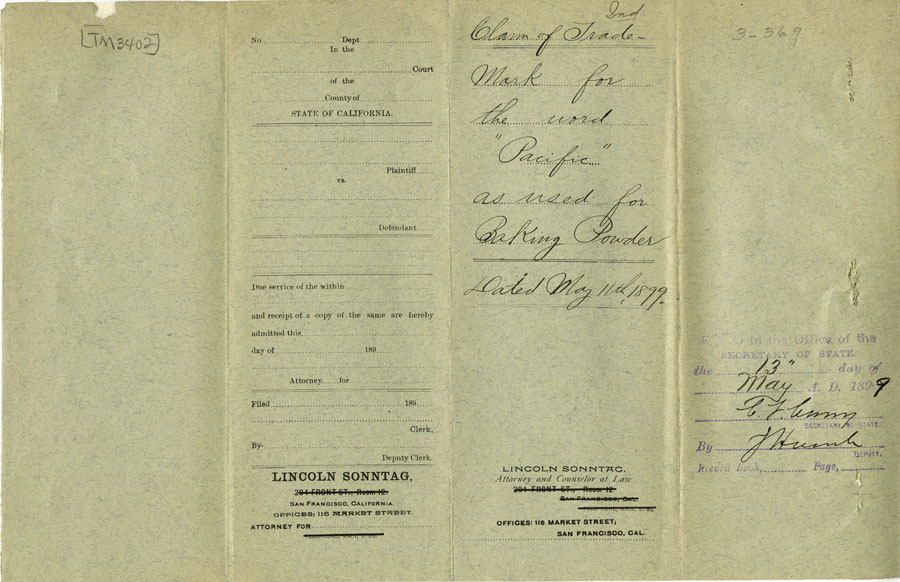 [TM3402]
No Dept
In the
Court
of the
County of
STATE OF CALIFORNIA.
Plaintiff
vs.
Defendant
Due service of the within
and receipt of a copy of the same are hereby
admitted this
day of 189
Attorney for
Filed 189
Clerk,
By
Deputy Clerk.
LINCOLN SONNTAG,
204 FRONT ST., Room 12.
SAN FRANCISCO, CALIFORNIA
OFFICES: 116 MARKET STREET.
ATTORNEY FOR
Ind
Claim of Trade-
Mark for
the word
"Pacific"
as used for
Baking Powder
Dated May 11th, 1899.
LINCOLN SONNTAG.
Attorney and Counselor at Law
204 FRONT ST., Room 12
SAN FRANCISCO, CAL.
OFFICES: 116 MARKET STREET;
SAN FRANCISCO, CAL.
3-369
in the Office of the
SECRETARY OF STATE.
the 13" day of
May A. D. 1899
C. F. Curry
SECRETARY OF STATE.
By
DEPUTY.
Record Book, Page,